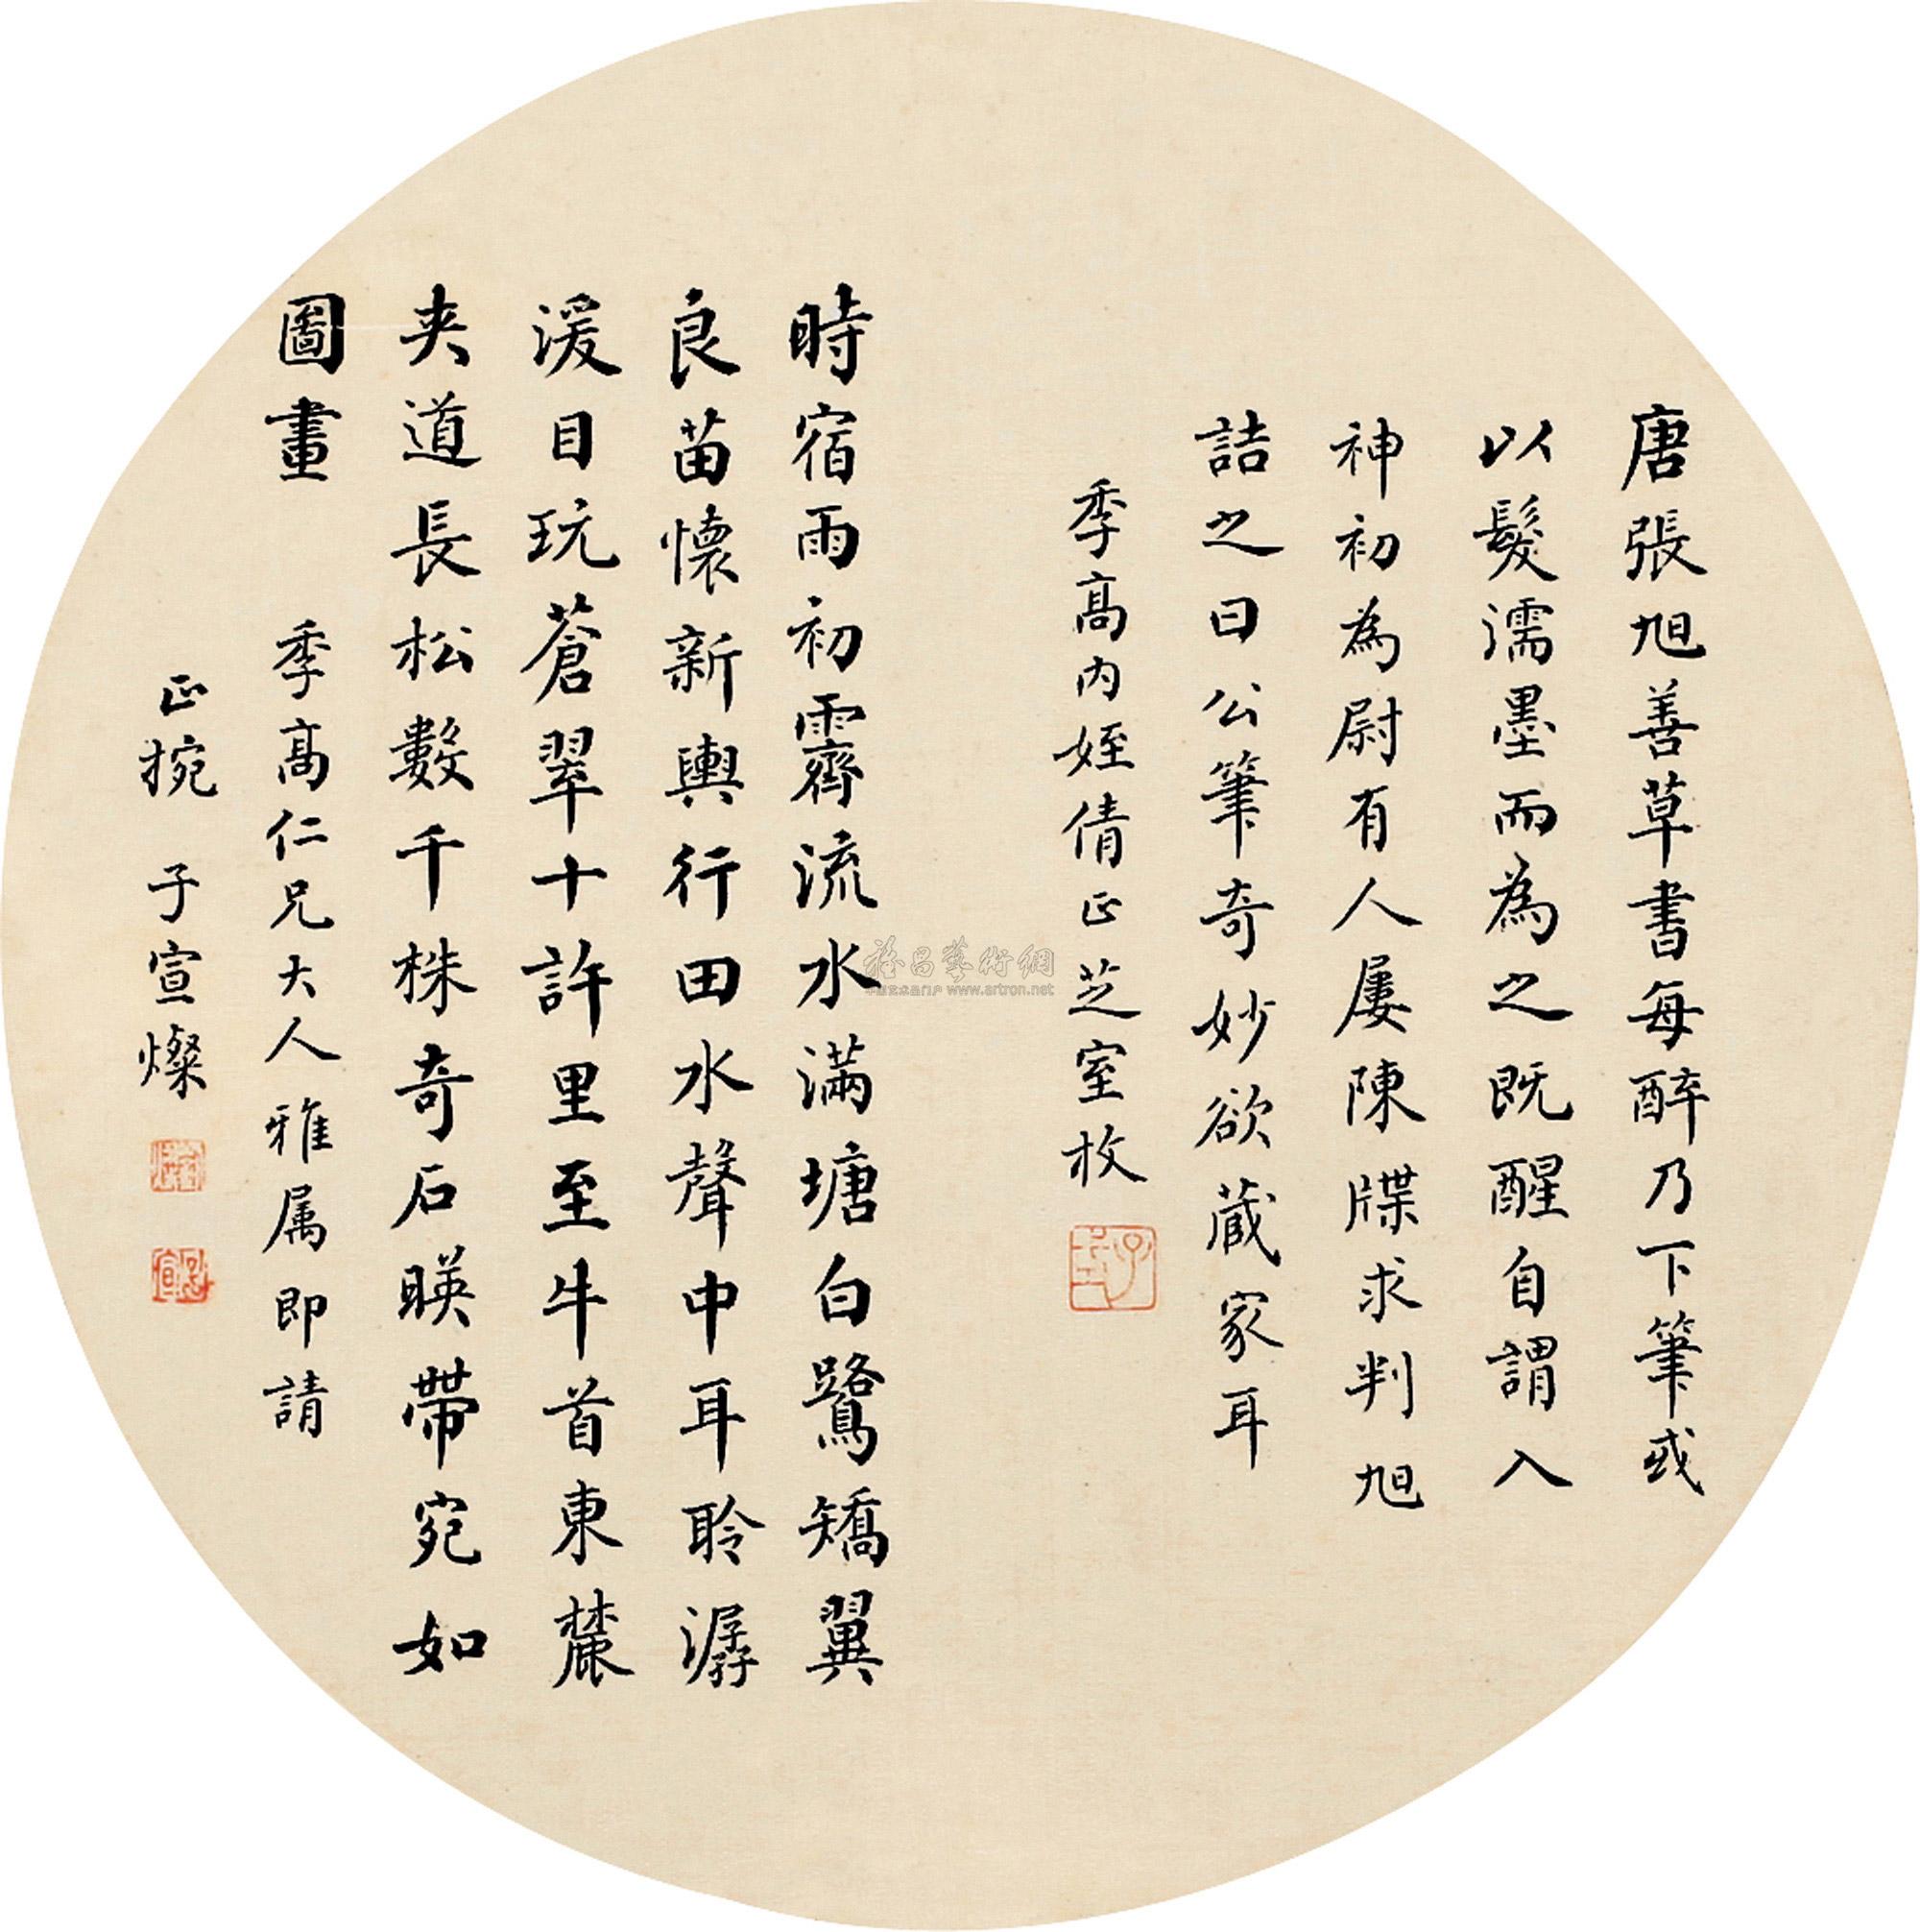 唐張旭善草書每醉乃下筆或
以髮濡墨而為之既醒自謂入
神初為尉有人屢陳牒求判旭
詰之曰公筆奇妙欲藏家耳
季高内姪倩正芝室枚
時宿雨初霽流水滿塘白鷺矯翼
良苗懷新輿行田水聲中耳聆潺
湲目玩蒼翠十許里至牛首東麓
夾道長松數千株奇石暎帶宛如
圖畫 季高仁兄大人雅属即請
正捥 子宣燦
雅昌藝術網
www.artron.net